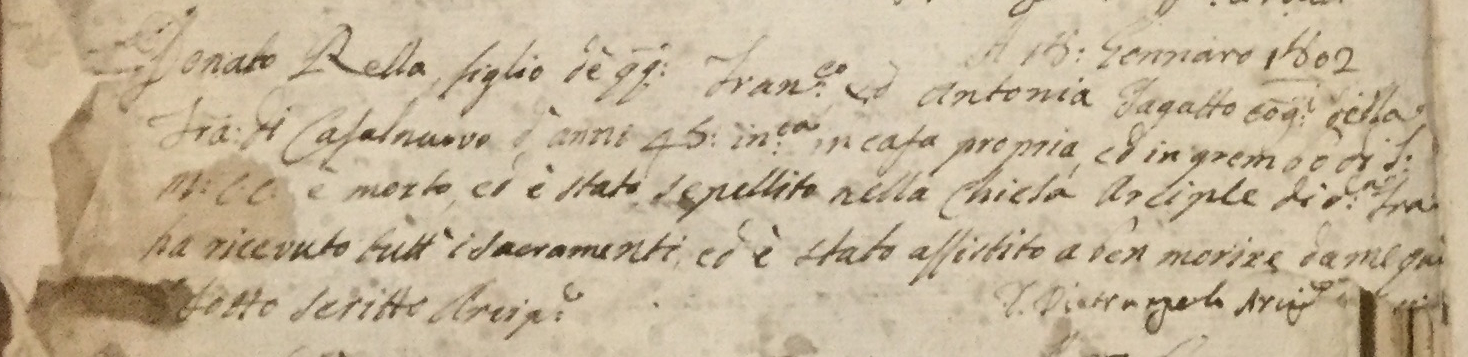 A 18: Gennaro 1802
Donato Rella, figlio dè qq: Fran:co ed Antonia Fagatto cog: della
Tra: di Casalnuovo d'anni 45: in:ca in casa propria, ed in grembo di S:
M: C. C. è morto, ed è stato sepellito nella Chiesa Arciple di d:a Tra:
ha ricevuto tutt' i Sacramenti, ed è stato assistito a ben morire da me qui
sotto scritto Arcip:e
D. Pietrangelo Arcip:e